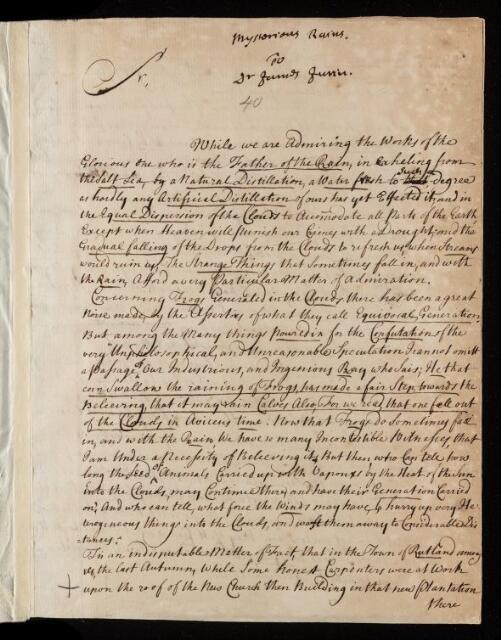 Mysterious Rains.
To
Dr James Jurin.
Sr,
40
While we are Admiring the Works of the
Glorious One who is the Father of the Rain, in Exhaling from
the Salt Sea, by a Natural Distillation, a Water fresh to such a degree
as hardly any Artificial Distillation of ours has yet Effected it; and in
the Equal Dispersion of the Clouds to Accomodate all Parts of the Earth
Except when Heaven will punish our Crimes with a Drought; and the
Gradual falling of the Drops from the Clouds to refresh us, when Streams
would ruin us; The Strange Things that Sometimes fall in, and with
the Rain, Afford a very Particular Matter of Admiration.
Concerning Frogs Generated in the Clouds, there has been a great
Noise made, by the Assertors of what they call Equivocal Generation.
But among the Many things Poured in for the Confutation of the
very Unphilosophical, and Unreasonable Speculation I cannot omitt
a Passage of Our Industrious, and Ingenious Ray, who Sais; He that
can Swallow the raining of Frogs, has made a fair Step towards the
Believing, that it may rain Calves Also; For we read, that one fell out
of the Clouds in Avicens Time. Now that Frogs do Sometimes fall
in, and with the Rain We have so many Incontestible Witnesses, that
I am Under a Necessity of Believing it; But then, who can tele how
long the Seed of Animals Carried up with Vapours by the Heat of the Sun
into the Clouds, may Continue there, and have their Generation Carried
on; And who can tell, what force the Winds may have, to hurry up very He-
terogeneous things into the Clouds, and waft them away to Considerable Dis-
tances.
Tis an indisputable Matter of Fact that in the Town of Rutland among
us, the last Autumn, while Some honest Carpenters were at Work
upon the roof of the New Church then Building in that new Plantation
there